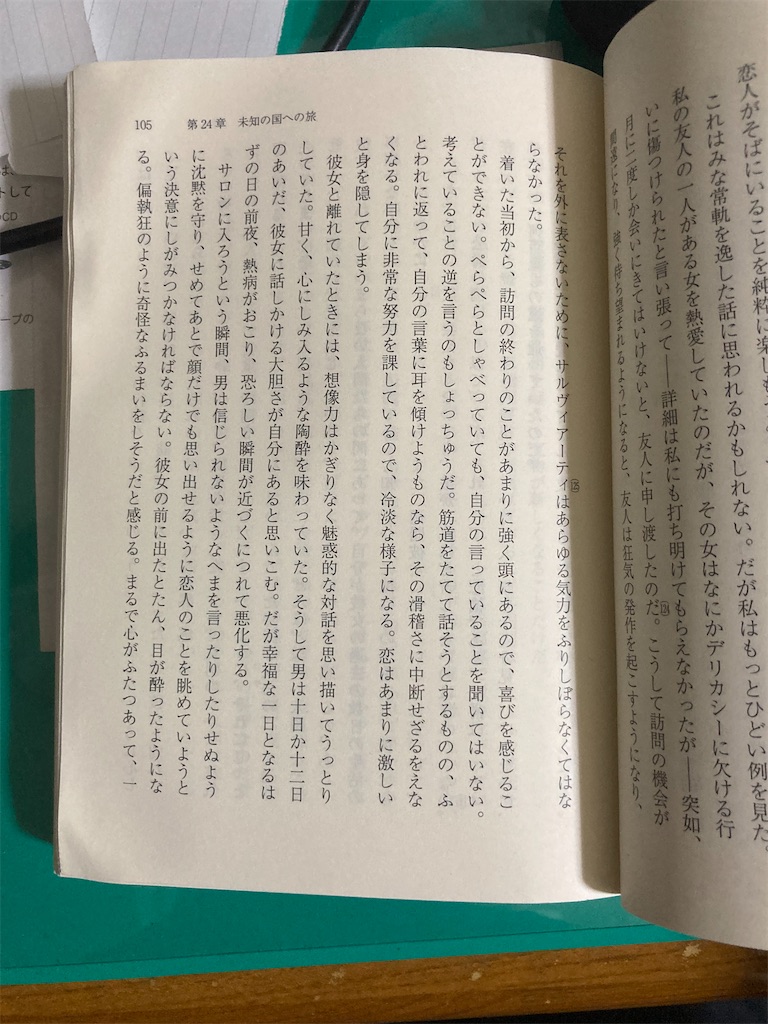 恋人がそばにいることを純粋に楽しも
これはみな常軌を逸した話に思われるかもしれない。だが私はもっとひどい例を見た。
私の友人の一人がある女を熱愛していたのだが、その女はなにかデリカシーに欠ける行
いに傷つけられたと言い張って――詳細は私にも打ち明けてもらえなかったが――突如、
月に二度しか会いにきてはいけないと、友人に申し渡したのだ。こうして訪問の機会が
間遠になり、強く待ち望まれるようになると、友人は狂気の発作を起こすようになり、
105 第24章 未知の国への旅
それを外に表さないために、サルヴィアーティはあらゆる気力をふりしぼらなくてはな
らなかった。
着いた当初から、訪問の終わりのことがあまりに強く頭にあるので、喜びを感じるこ
とができない。ぺらぺらとしゃべっていても、自分の言っていることを聞いてはいない。
考えていることの逆を言うのもしょっちゅうだ。筋道をたてて話そうとするものの、ふ
とわれに返って、自分の言葉に耳を傾けようものなら、その滑稽さに中断せざるをえな
くなる。自分に非常な努力を課しているので、冷淡な様子になる。恋はあまりに激しい
と身を隠してしまう。
彼女と離れていたときには、想像力はかぎりなく魅惑的な対話を思い描いてうっとり
していた。甘く、心にしみ入るような陶酔を味わっていた。そうして男は十日か十二日
のあいだ、彼女に話しかける大胆さが自分にあると思いこむ。だが幸福な一日となるは
ずの日の前夜、熱病がおこり、恐ろしい瞬間が近づくにつれて悪化する。
サロンに入ろうという瞬間、男は信じられないようなへまを言ったりしたりせぬよう
に沈黙を守り、せめてあとで顔だけでも思い出せるように恋人のことを眺めていようと
いう決意にしがみつかなければならない。彼女の前に出たとたん、目が酔ったようにな
る。偏執狂のように奇怪なふるまいをしそうだと感じる。まるで心がふたつあって、一
CD
ープの